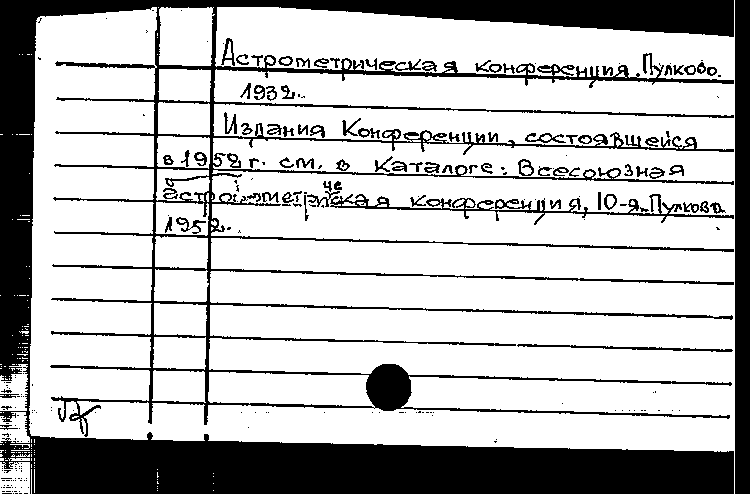 Астрометрическая конференция. Пулково.
1932.
Издания Конференции, состоявшейся
в 1952 г. см. в каталоге: Всесоюзная
астрометрическая конференция, 10-я. Пулково
1952.